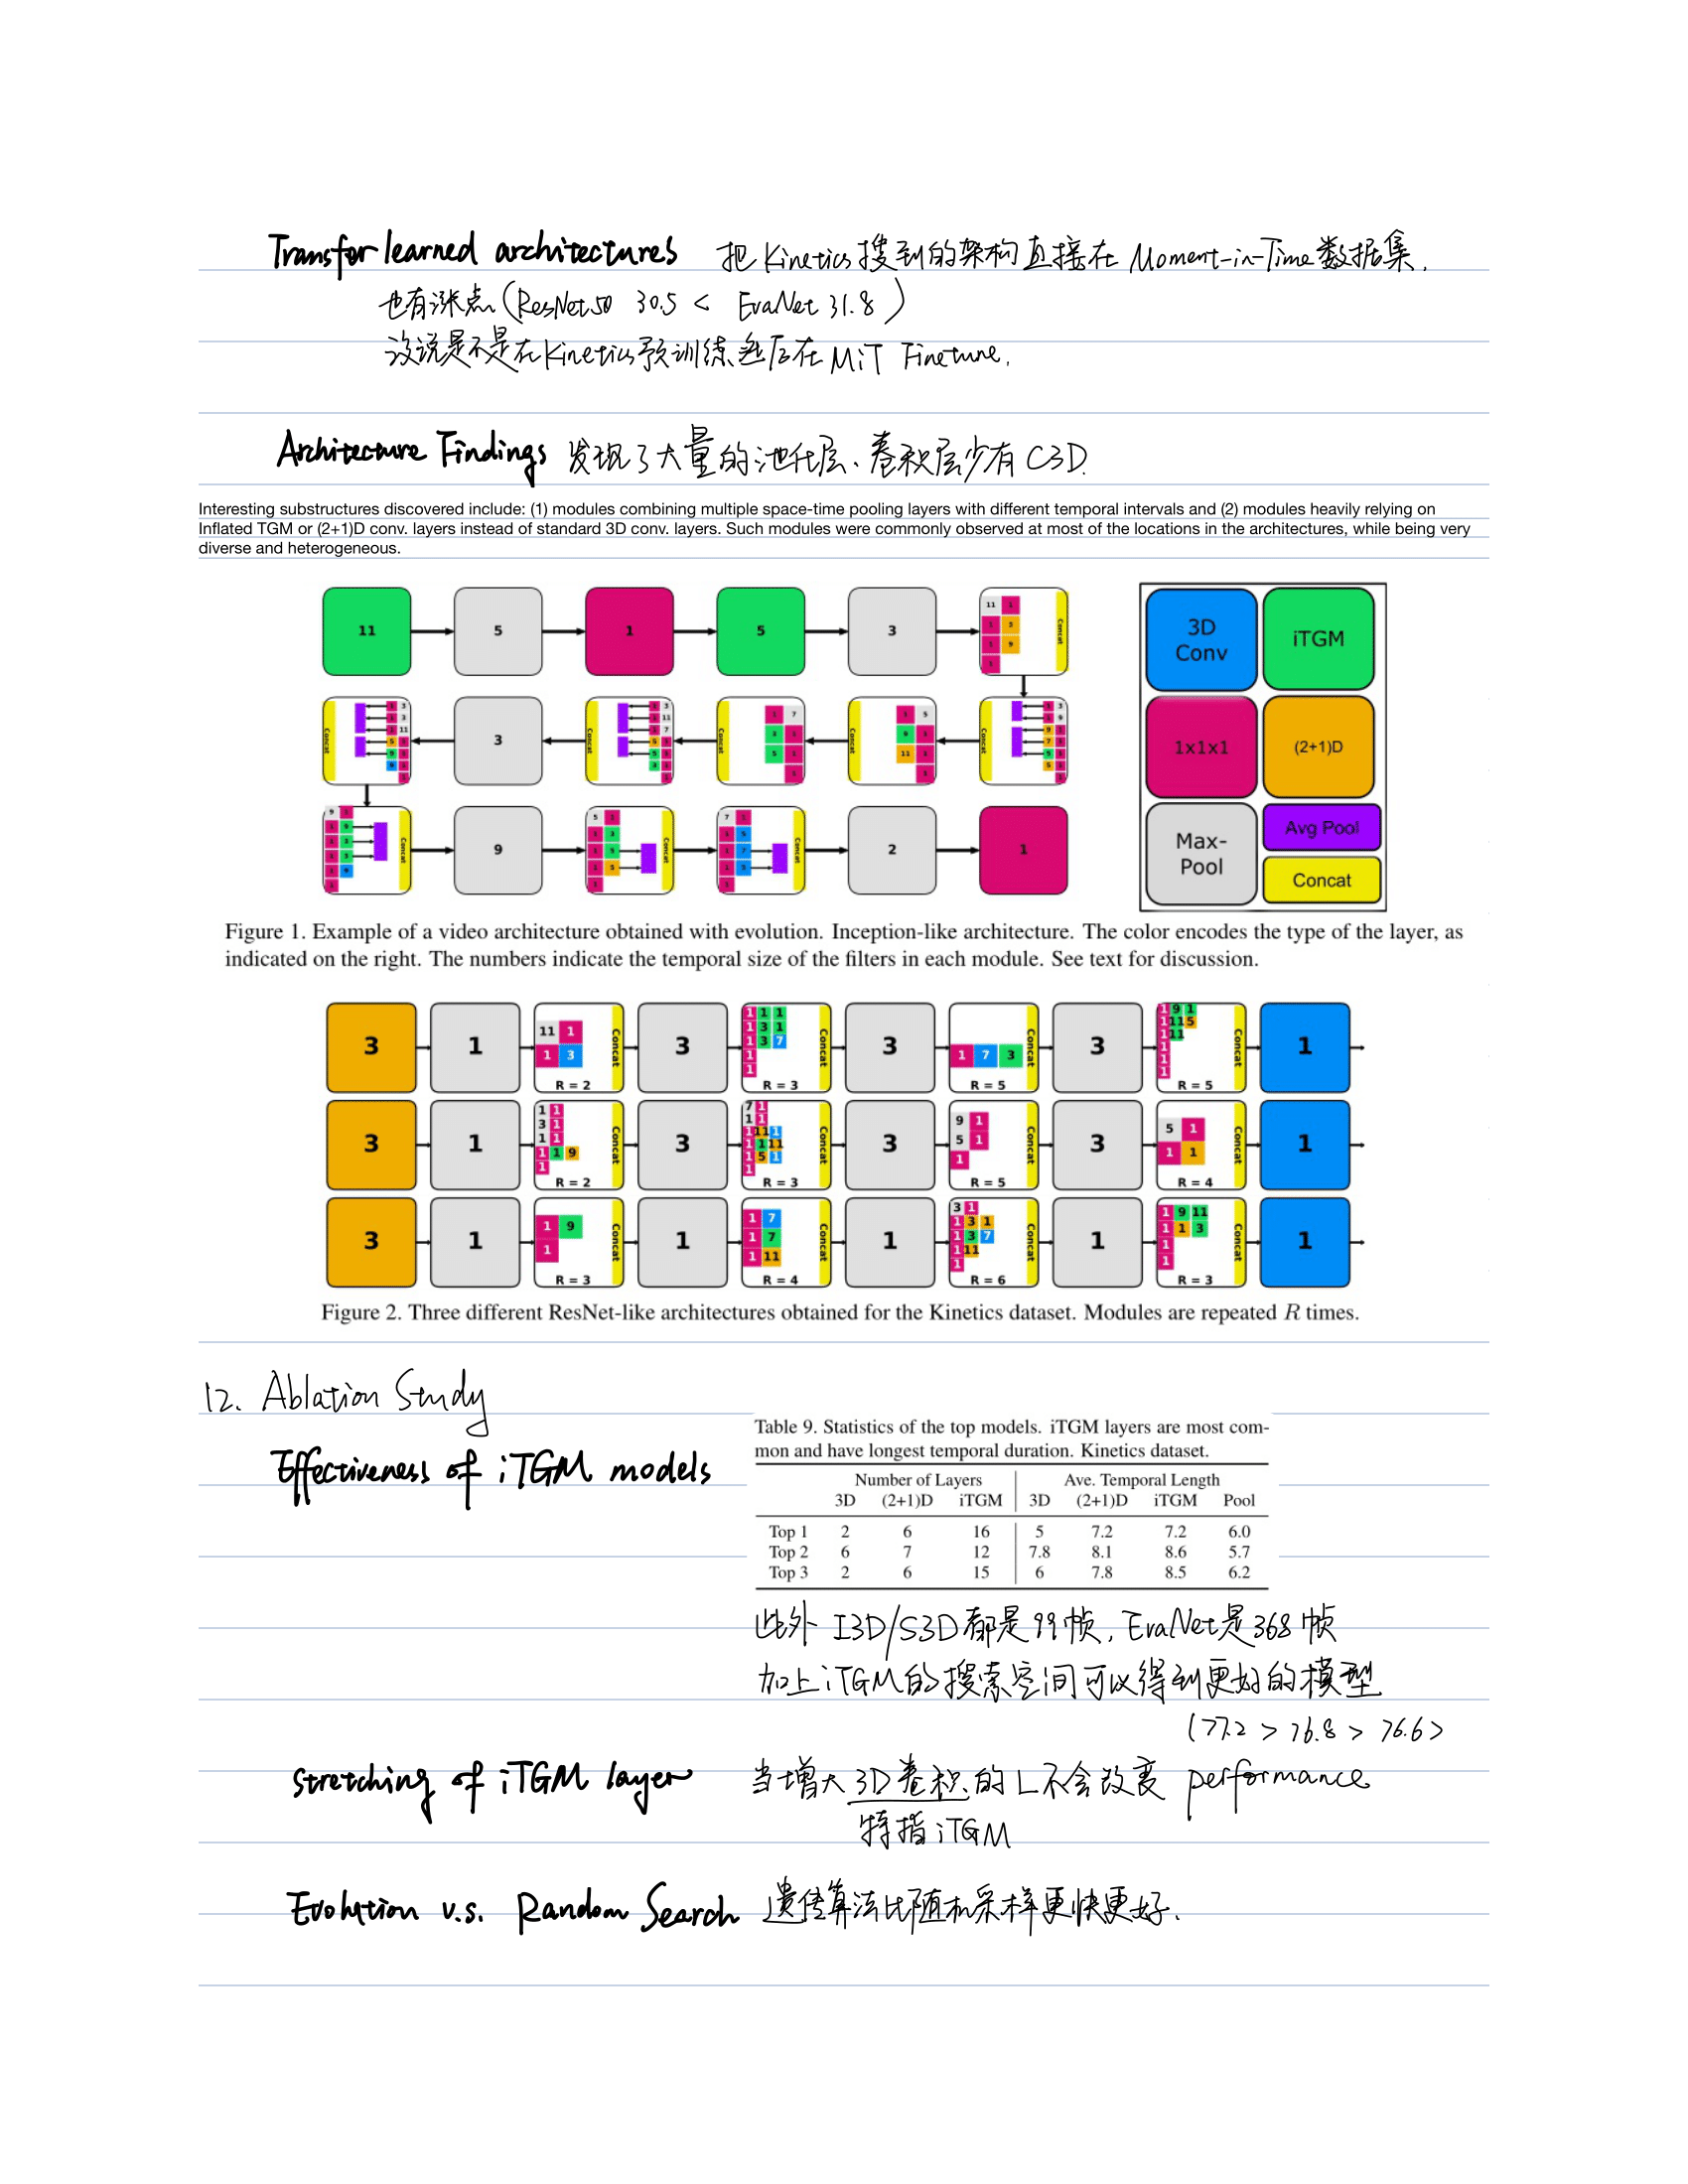 Transfer learned architectures 把Kinetics搜到的架构直接在 Moment-in-Time数据集,
也有涨点(ResNet50 30.5 < EvaNet 31.8)
没说是不是在Kinetics预训练然后在MiT Finetune.
Architecture Findings 发现了大量的池化层、卷积层少有C3D.
Interesting substructures discovered include: (1) modules combining multiple space-time pooling layers with different temporal intervals and (2) modules heavily relying on
Inflated TGM or (2+1)D conv. layers instead of standard 3D conv. layers. Such modules were commonly observed at most of the locations in the architectures, while being very
diverse and heterogeneous.
11 5 1 5 3
3
9 2 1
Concat
3D Conv iTGM
1x1x1 (2+1)D
Max-Pool Avg Pool
Concat
Figure 1. Example of a video architecture obtained with evolution. Inception-like architecture. The color encodes the type of the layer, as
indicated on the right. The numbers indicate the temporal size of the filters in each module. See text for discussion.
3 1 R = 2 Concat 3 R = 3 Concat 3 R = 5 Concat 3 R = 5 Concat 1
3 1 R = 2 Concat 3 R = 3 Concat 3 R = 5 Concat 3 R = 4 Concat 1
3 1 R = 3 Concat 1 R = 4 Concat 1 R = 6 Concat 1 R = 3 Concat 1
Figure 2. Three different ResNet-like architectures obtained for the Kinetics dataset. Modules are repeated R times.
12. Ablation Study
Effectiveness of iTGM models
Table 9. Statistics of the top models. iTGM layers are most com-
mon and have longest temporal duration. Kinetics dataset.
Number of Layers Ave. Temporal Length
3D (2+1)D iTGM 3D (2+1)D iTGM Pool
Top 1 2 6 16 5 7.2 7.2 6.0
Top 2 6 7 12 7.8 8.1 8.6 5.7
Top 3 2 6 15 6 7.8 8.5 6.2
此外 I3D/S3D都是99帧, EvaNet是368帧
加上iTGM的搜索空间可以得到更好的模型
(77.2 > 76.8 > 76.6)
Stretching of iTGM layer 当增大3D卷积的L不会改变 performance
特指iTGM
Evolution v.s. Random Search 遗传算法比随机采样更快更好.